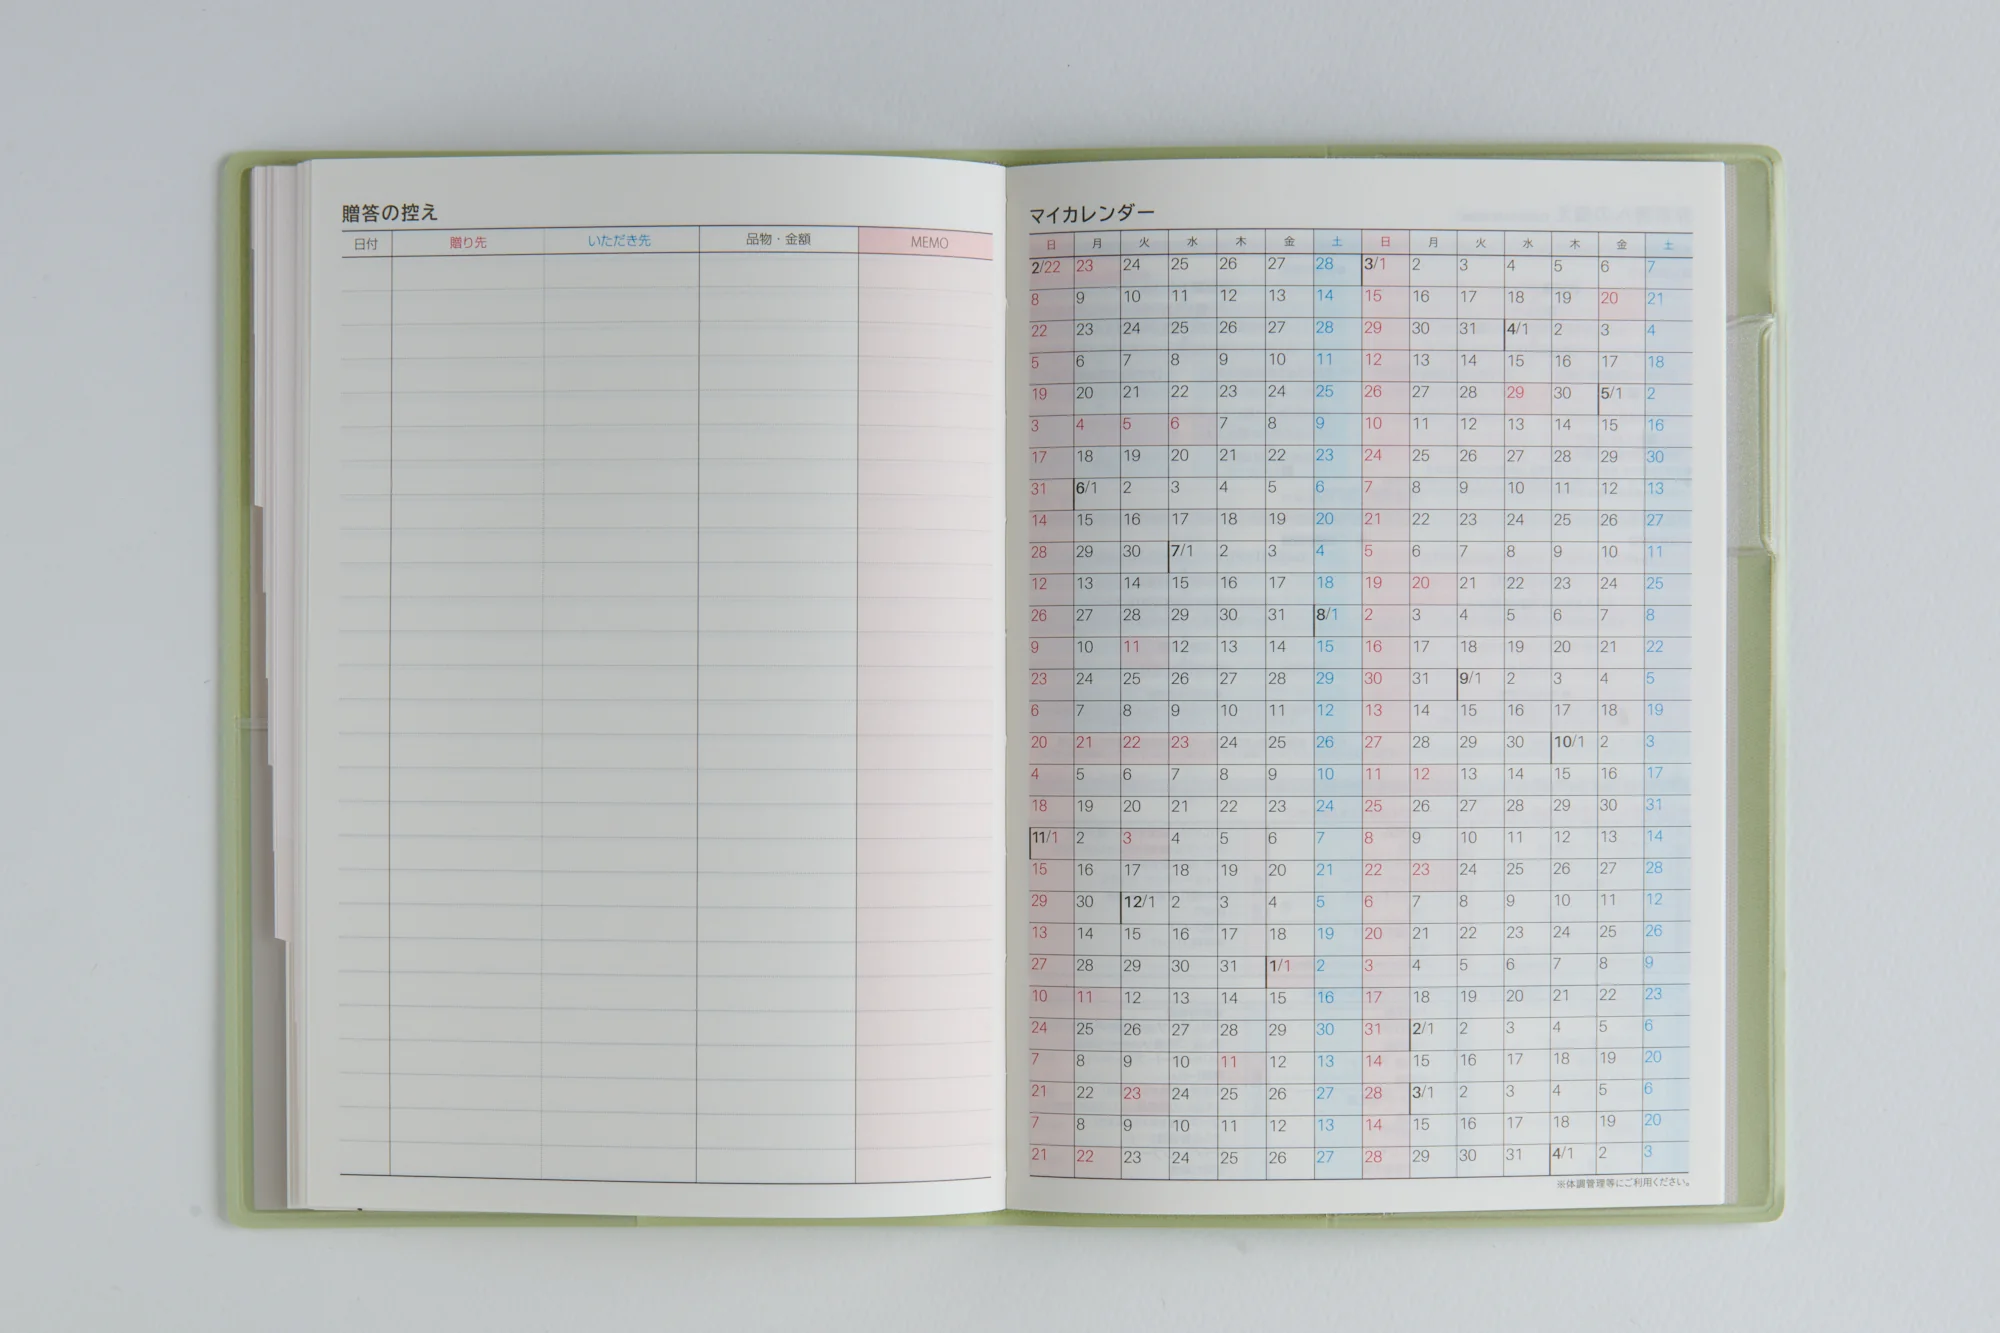 贈答の控え
日付 贈り先 いただき先 品物・金額 MEMO
マイカレンダー
日 月 火 水 木 金 土 日 月 火 水 木 金 土
2/22 23 24 25 26 27 28 3/1 2 3 4 5 6 7
8 9 10 11 12 13 14 15 16 17 18 19 20 21
22 23 24 25 26 27 28 29 30 31 4/1 2 3 4
5 6 7 8 9 10 11 12 13 14 15 16 17 18
19 20 21 22 23 24 25 26 27 28 29 30 5/1 2
3 4 5 6 7 8 9 10 11 12 13 14 15 16
17 18 19 20 21 22 23 24 25 26 27 28 29 30
31 6/1 2 3 4 5 6 7 8 9 10 11 12 13
14 15 16 17 18 19 20 21 22 23 24 25 26 27
28 29 30 7/1 2 3 4 5 6 7 8 9 10 11
12 13 14 15 16 17 18 19 20 21 22 23 24 25
26 27 28 29 30 31 8/1 2 3 4 5 6 7 8
9 10 11 12 13 14 15 16 17 18 19 20 21 22
23 24 25 26 27 28 29 30 31 9/1 2 3 4 5
6 7 8 9 10 11 12 13 14 15 16 17 18 19
20 21 22 23 24 25 26 27 28 29 30 10/1 2 3
4 5 6 7 8 9 10 11 12 13 14 15 16 17
18 19 20 21 22 23 24 25 26 27 28 29 30 31
11/1 2 3 4 5 6 7 8 9 10 11 12 13 14
15 16 17 18 19 20 21 22 23 24 25 26 27 28
29 30 12/1 2 3 4 5 6 7 8 9 10 11 12
13 14 15 16 17 18 19 20 21 22 23 24 25 26
27 28 29 30 31 1/1 2 3 4 5 6 7 8 9
10 11 12 13 14 15 16 17 18 19 20 21 22 23
24 25 26 27 28 29 30 31 2/1 2 3 4 5 6
7 8 9 10 11 12 13 14 15 16 17 18 19 20
21 22 23 24 25 26 27 28 3/1 2 3 4 5 6
7 8 9 10 11 12 13 14 15 16 17 18 19 20
21 22 23 24 25 26 27 28 29 30 31 4/1 2 3
※体調管理等にご利用ください。